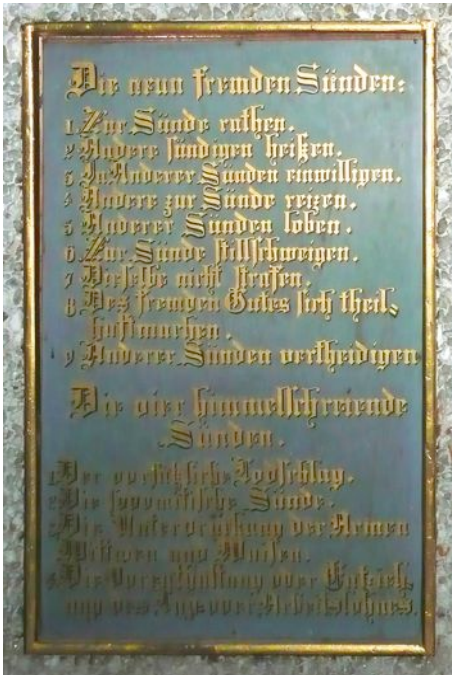 Die neun fremden Sünden:
1. Zur Sünde rathen.
2. Andere sündigen heißen.
3. In Anderer Sünden einwilligen.
4. Andere zur Sünde reizen.
5. Anderer Sünden loben.
6. Zur Sünde stillschweigen.
7. Dieselbe nicht strafen.
8. Des fremden Gutes sich theil-
haftmachen.
9. Anderer Sünden vertheidigen
Die vier himmelschreiende
Sünden.
1. Der vorsätzliche Todschlag.
2. Die sodomitische Sünde.
3. Die Unterdrückung der Armen
Wittwen und Waisen.
4. Die Vorenthaltung oder Entzieh-
ung des Tag- oder Arbeitslohnes.